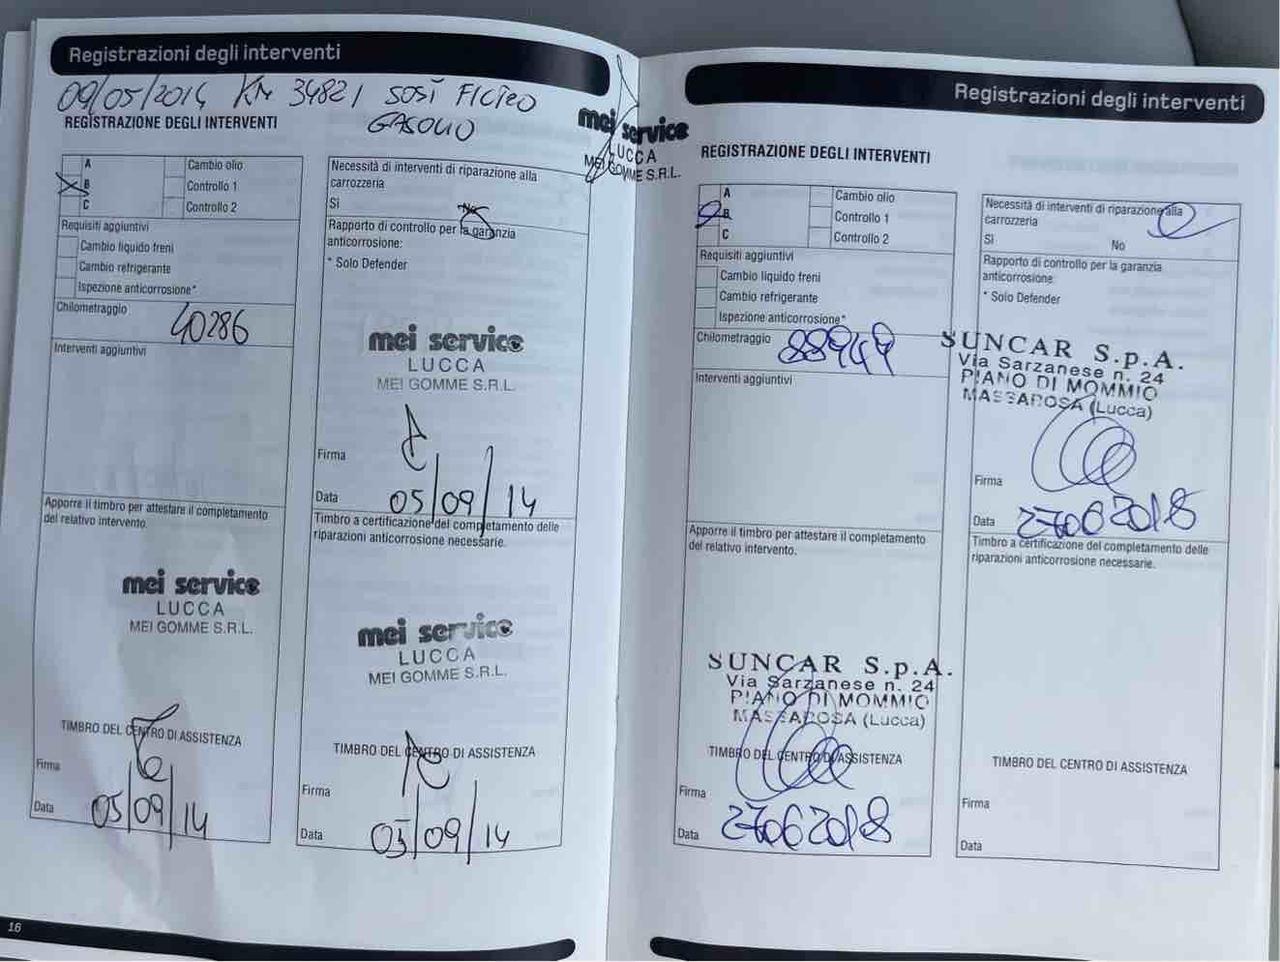 Registrazioni degli interventi
09/05/2014 KM 34821 SOSÌ FILTRO
GASOLIO
REGISTRAZIONE DEGLI INTERVENTI
A
B
C
Cambio olio
Controllo 1
Controllo 2
Requisiti aggiuntivi
Cambio liquido freni
Cambio refrigerante
Ispezione anticorrosione*
Chilometraggio
40286
Interventi aggiuntivi
Apporre il timbro per attestare il completamento
del relativo intervento.
mei service
LUCCA
MEI GOMME S.R.L.
TIMBRO DEL CENTRO DI ASSISTENZA
Firma
Data 05/09/14
Necessità di interventi di riparazione alla
carrozzeria
Sì No
Rapporto di controllo per la garanzia
anticorrosione:
* Solo Defender
mei service
LUCCA
MEI GOMME S.R.L.
Firma
Data 05/09/14
Timbro a certificazione del completamento delle
riparazioni anticorrosione necessarie.
mei service
LUCCA
MEI GOMME S.R.L.
TIMBRO DEL CENTRO DI ASSISTENZA
Firma
Data 05/09/14
16
mei service
LUCCA
MEI GOMME S.R.L.
Registrazioni degli interventi
REGISTRAZIONE DEGLI INTERVENTI
A
B
C
Cambio olio
Controllo 1
Controllo 2
Requisiti aggiuntivi
Cambio liquido freni
Cambio refrigerante
Ispezione anticorrosione*
Chilometraggio
88949
Interventi aggiuntivi
Apporre il timbro per attestare il completamento
del relativo intervento.
SUNCAR S.p.A.
Via Sarzanese n. 24
PIANO DI MOMMIO
MASSAROSA (Lucca)
TIMBRO DEL CENTRO DI ASSISTENZA
Firma
Data 27062018
Necessità di interventi di riparazione alla
carrozzeria
Sì No
Rapporto di controllo per la garanzia
anticorrosione:
* Solo Defender
SUNCAR S.p.A.
Via Sarzanese n. 24
PIANO DI MOMMIO
MASSAROSA (Lucca)
Firma
Data 27062018
Timbro a certificazione del completamento delle
riparazioni anticorrosione necessarie.
TIMBRO DEL CENTRO DI ASSISTENZA
Firma
Data